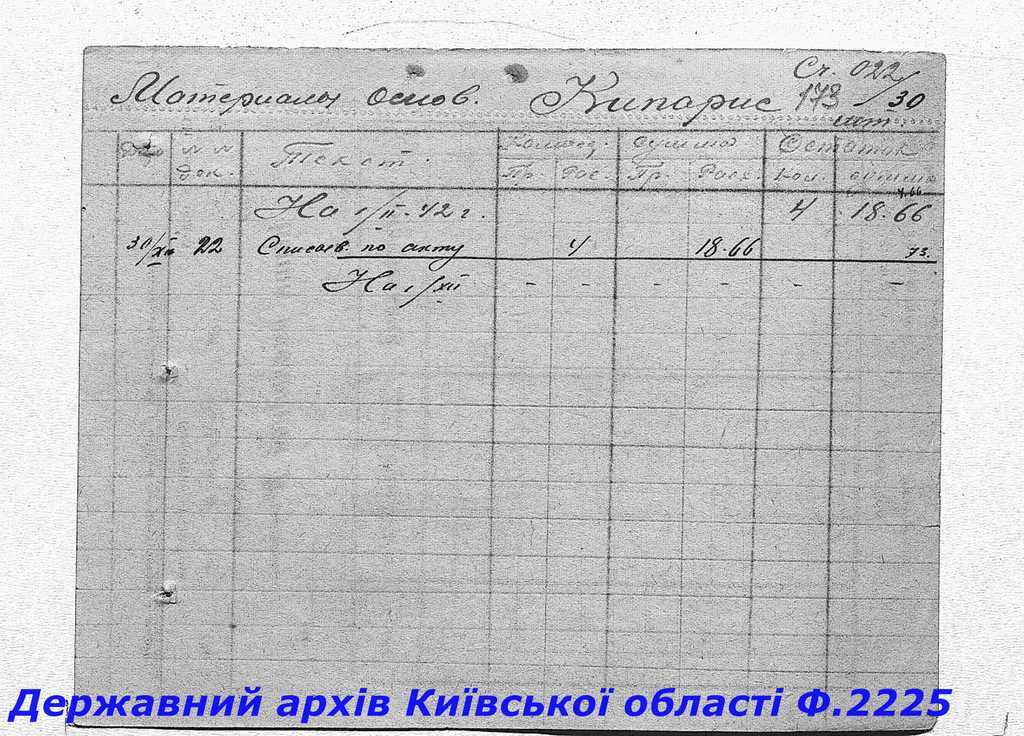 Сч. 022/
Материалы основ. Кипарис 173/30
шт
№ № Колич. сумма Остаток
док. Текст. Пр. Рас. Пр. Расх. кол. сумма
4.66
На 1/II-42 г. 4 18-66
30/XII 22 Списыв. по акту 4 18-66 73.
На 1/XII - - - - - -
Державний архів Київської області Ф.2225